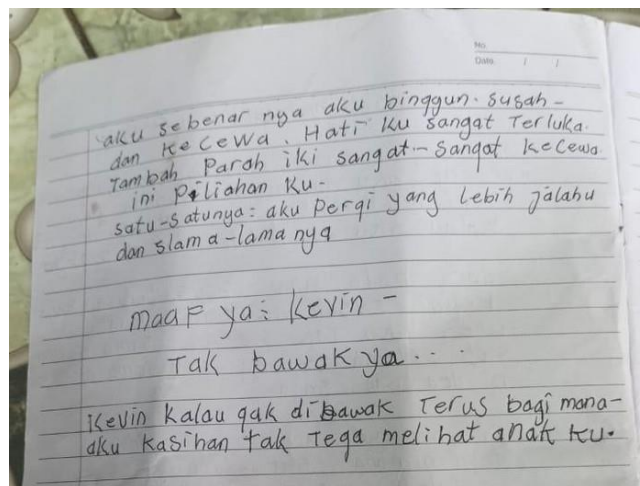 No
Date / /
aku sebenar nya aku binggun. susah-
dan Kecewa. Hati Ku sangat Terluka.
Tambah Parah iki sangat-sangat Kecewa
ini Piliahan Ku-
satu-satunya: aku pergi yang lebih jalahu
dan slama-lama nya
maaF ya: Kevin -
Tak bawak ya...
Kevin Kalau gak dibawak Terus bagi mana-
aku Kasihan tak Tega melihat anak ku.